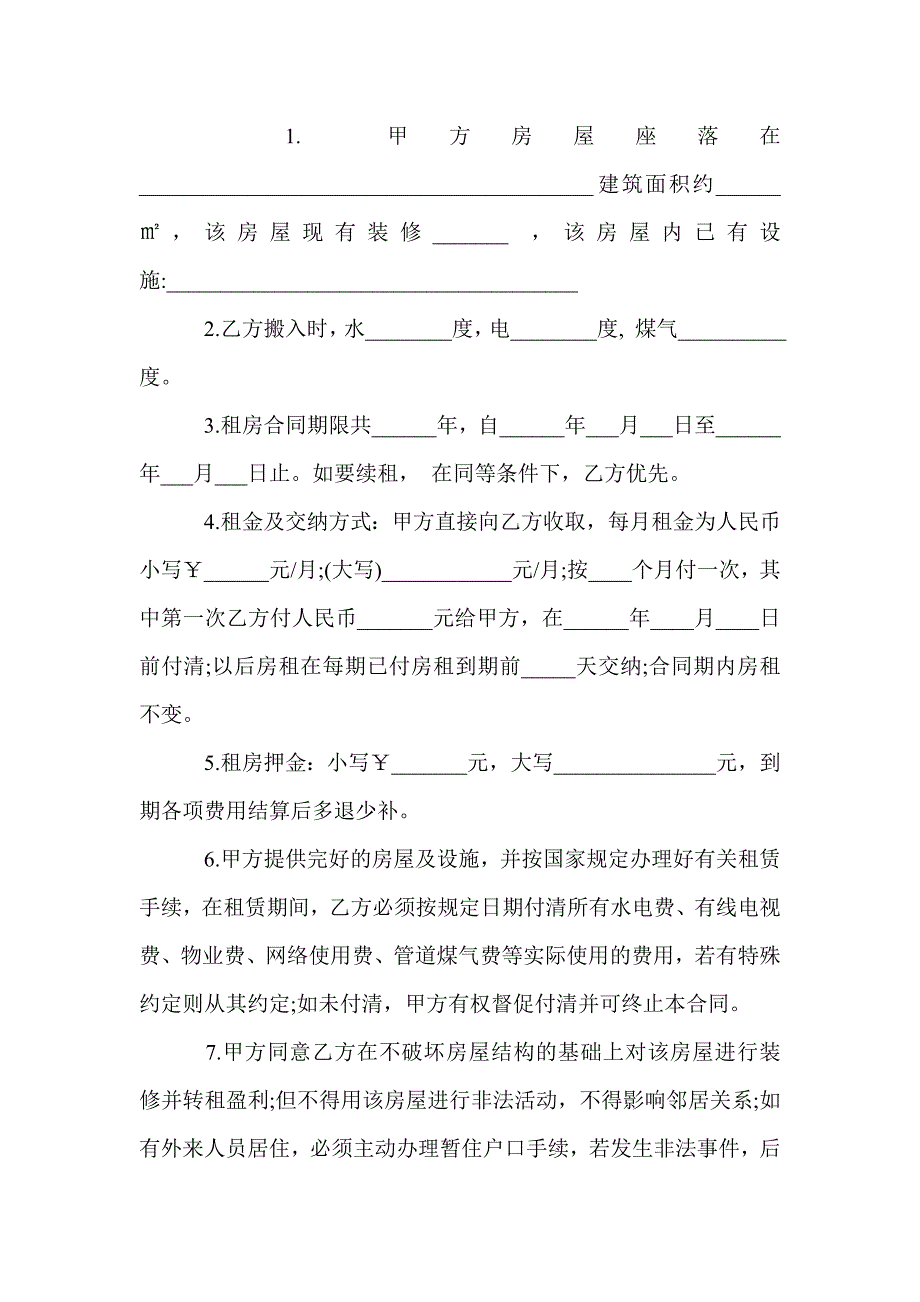 1. 甲方房屋座落在
__________________________________________建筑面积约______
㎡，该房屋现有装修_______ ，该房屋内已有设
施:______________________________________
2.乙方搬入时，水________度，电________度, 煤气__________
度。
3.租房合同期限共______年，自______年___月___日至______
年___月___日止。如要续租， 在同等条件下，乙方优先。
4.租金及交纳方式：甲方直接向乙方收取，每月租金为人民币
小写￥______元/月;(大写)____________元/月;按____个月付一次，其
中第一次乙方付人民币_______元给甲方，在______年____月____日
前付清;以后房租在每期已付房租到期前_____天交纳;合同期内房租
不变。
5.租房押金：小写￥_______元，大写_______________元，到
期各项费用结算后多退少补。
6.甲方提供完好的房屋及设施，并按国家规定办理好有关租赁
手续，在租赁期间，乙方必须按规定日期付清所有水电费、有线电视
费、物业费、网络使用费、管道煤气费等实际使用的费用，若有特殊
约定则从其约定;如未付清，甲方有权督促付清并可终止本合同。
7.甲方同意乙方在不破坏房屋结构的基础上对该房屋进行装
修并转租盈利;但不得用该房屋进行非法活动，不得影响邻居关系;如
有外来人员居住，必须主动办理暂住户口手续，若发生非法事件，后